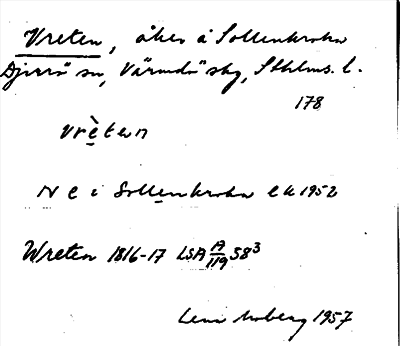 Vreten, åker å Sollenkroka
Djurö sn, Värmdö skg, Sthlms. l.
178
vrètan
N e i Sollenkroka ek 1952
Wreten 1816-17 LSA A/119 58³
Lena Moberg 1957